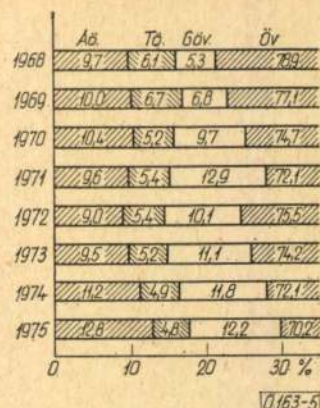 Áö. Tö. Göv. Öv
1968 9,7 6,1 5,3 78,9
1969 10,0 6,7 6,8 77,1
1970 10,4 5,2 9,7 74,7
1971 9,6 5,4 12,9 72,1
1972 9,0 5,4 10,1 75,5
1973 9,5 5,2 11,1 74,2
1974 11,2 4,9 11,8 72,1
1975 12,8 4,8 12,2 70,2
0 10 20 30 %
0163-5